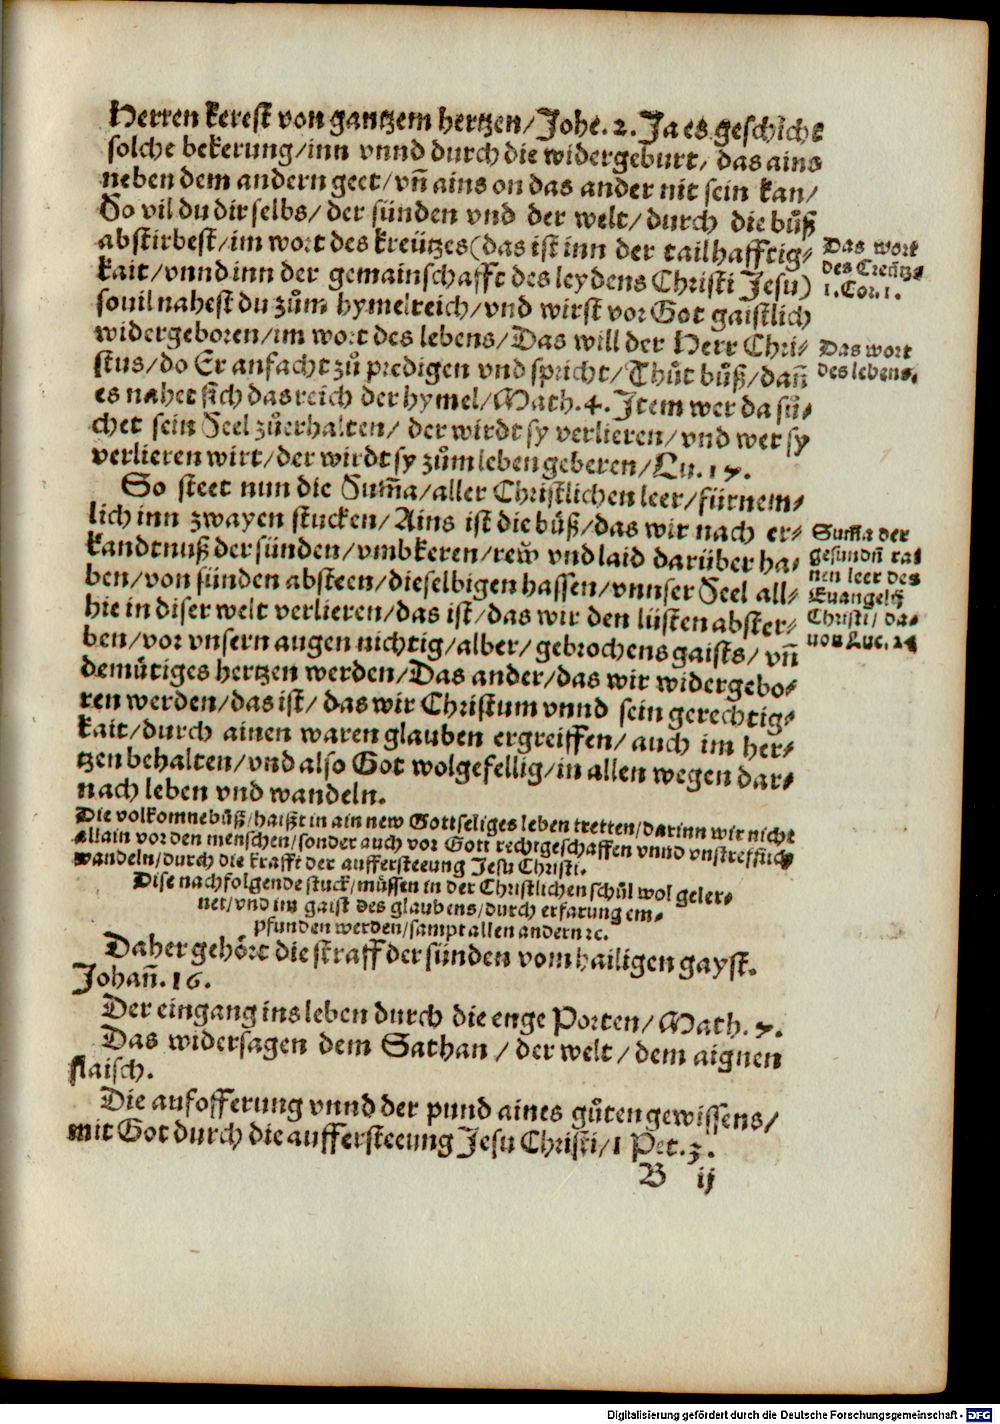 Herren kerest von gantzem hertzen/ Johe. 2. Ja es geschicht
solche bekerung/ inn vnnd durch die widergeburt/ das ains
neben dem andern geet/ vñ ains on das ander nit sein kan/
So vil du dir selbs/ der sünden vnd der welt/ durch die bůß
abstirbest/ im wort des kreützes (das ist inn der tailhafftig-
kait/ vnnd inn der gemainschafft des leydens Christi Jesu)
souil nahest du zům hymelreich/ vnd wirst vor Got gaistlich
widergeboren/ im wort des lebens/ Das will der Herr Chri-
stus/ do Er anfacht zů predigen vnd spricht/ Thůt bůß/ dañ
es nahet sich das reich der hymel/ Math. 4. Item wer da sů-
chet sein Seel zůerhalten/ der wirdt sy verlieren/ vnd wer sy
verlieren wirt/ der wirdt sy zům leben geberen/ Lu. 17.
Das wort
des Creütz-
1. Cor. 1.
Das wort
des lebens.
So steet nun die Sum̃a/ aller Christlichen leer/ fürnem-
lich inn zwayen stucken/ Ains ist die bůß/ das wir nach er-
kandtnuß der sünden/ vmbkeren/ rew vnd laid darüber ha-
ben/ von sünden absteen/ dieselbigen hassen/ vnnser Seel all-
hie in diser welt verlieren/ das ist/ das wir den lüsten abster-
ben/ vor vnsern augen nichtig/ alber/ gebrochens gaists/ vñ
demütiges hertzen werden/ Das ander/ das wir widergebo-
ren werden/ das ist/ das wir Christum vnnd sein gerechtig-
kait/ durch ainen waren glauben ergreiffen/ auch im her-
tzen behalten/ vnd also Got wolgefellig/ in allen wegen dar-
nach leben vnd wandeln.
Sum̃a der
gesundñ rai
nen leer des
Euangelij
Christi/ da-
uon Luc. 24
Die volkomne bůß/ haißt in ain new Gottseliges leben tretten/ darinn wir nicht
allain vor den menschen/ sonder auch vor Gott rechtgeschaffen vnnd vnstrefflich
wandeln/ durch die krafft der auffersteeung Jesu Christi.
Dise nachfolgende stuck/ müssen in der Christlichen schůl wol geler-
net/ vnd im gaist des glaubens/ durch erfarung em-
pfunden werden/ sampt allen andern ꝛc.
Daher gehört die straff der sünden vom hailigen gayst.
Johañ. 16.
Der eingang ins leben durch die enge Porten/ Math. 7.
Das widersagen dem Sathan/ der welt/ dem aignen
flaisch.
Die aufofferung vnnd der pund aines gůten gewissens/
mit Got durch die auffersteeung Jesu Christi/ 1 Pet. 3.
B ij
Digitalisierung gefördert durch die Deutsche Forschungsgemeinschaft - DFG